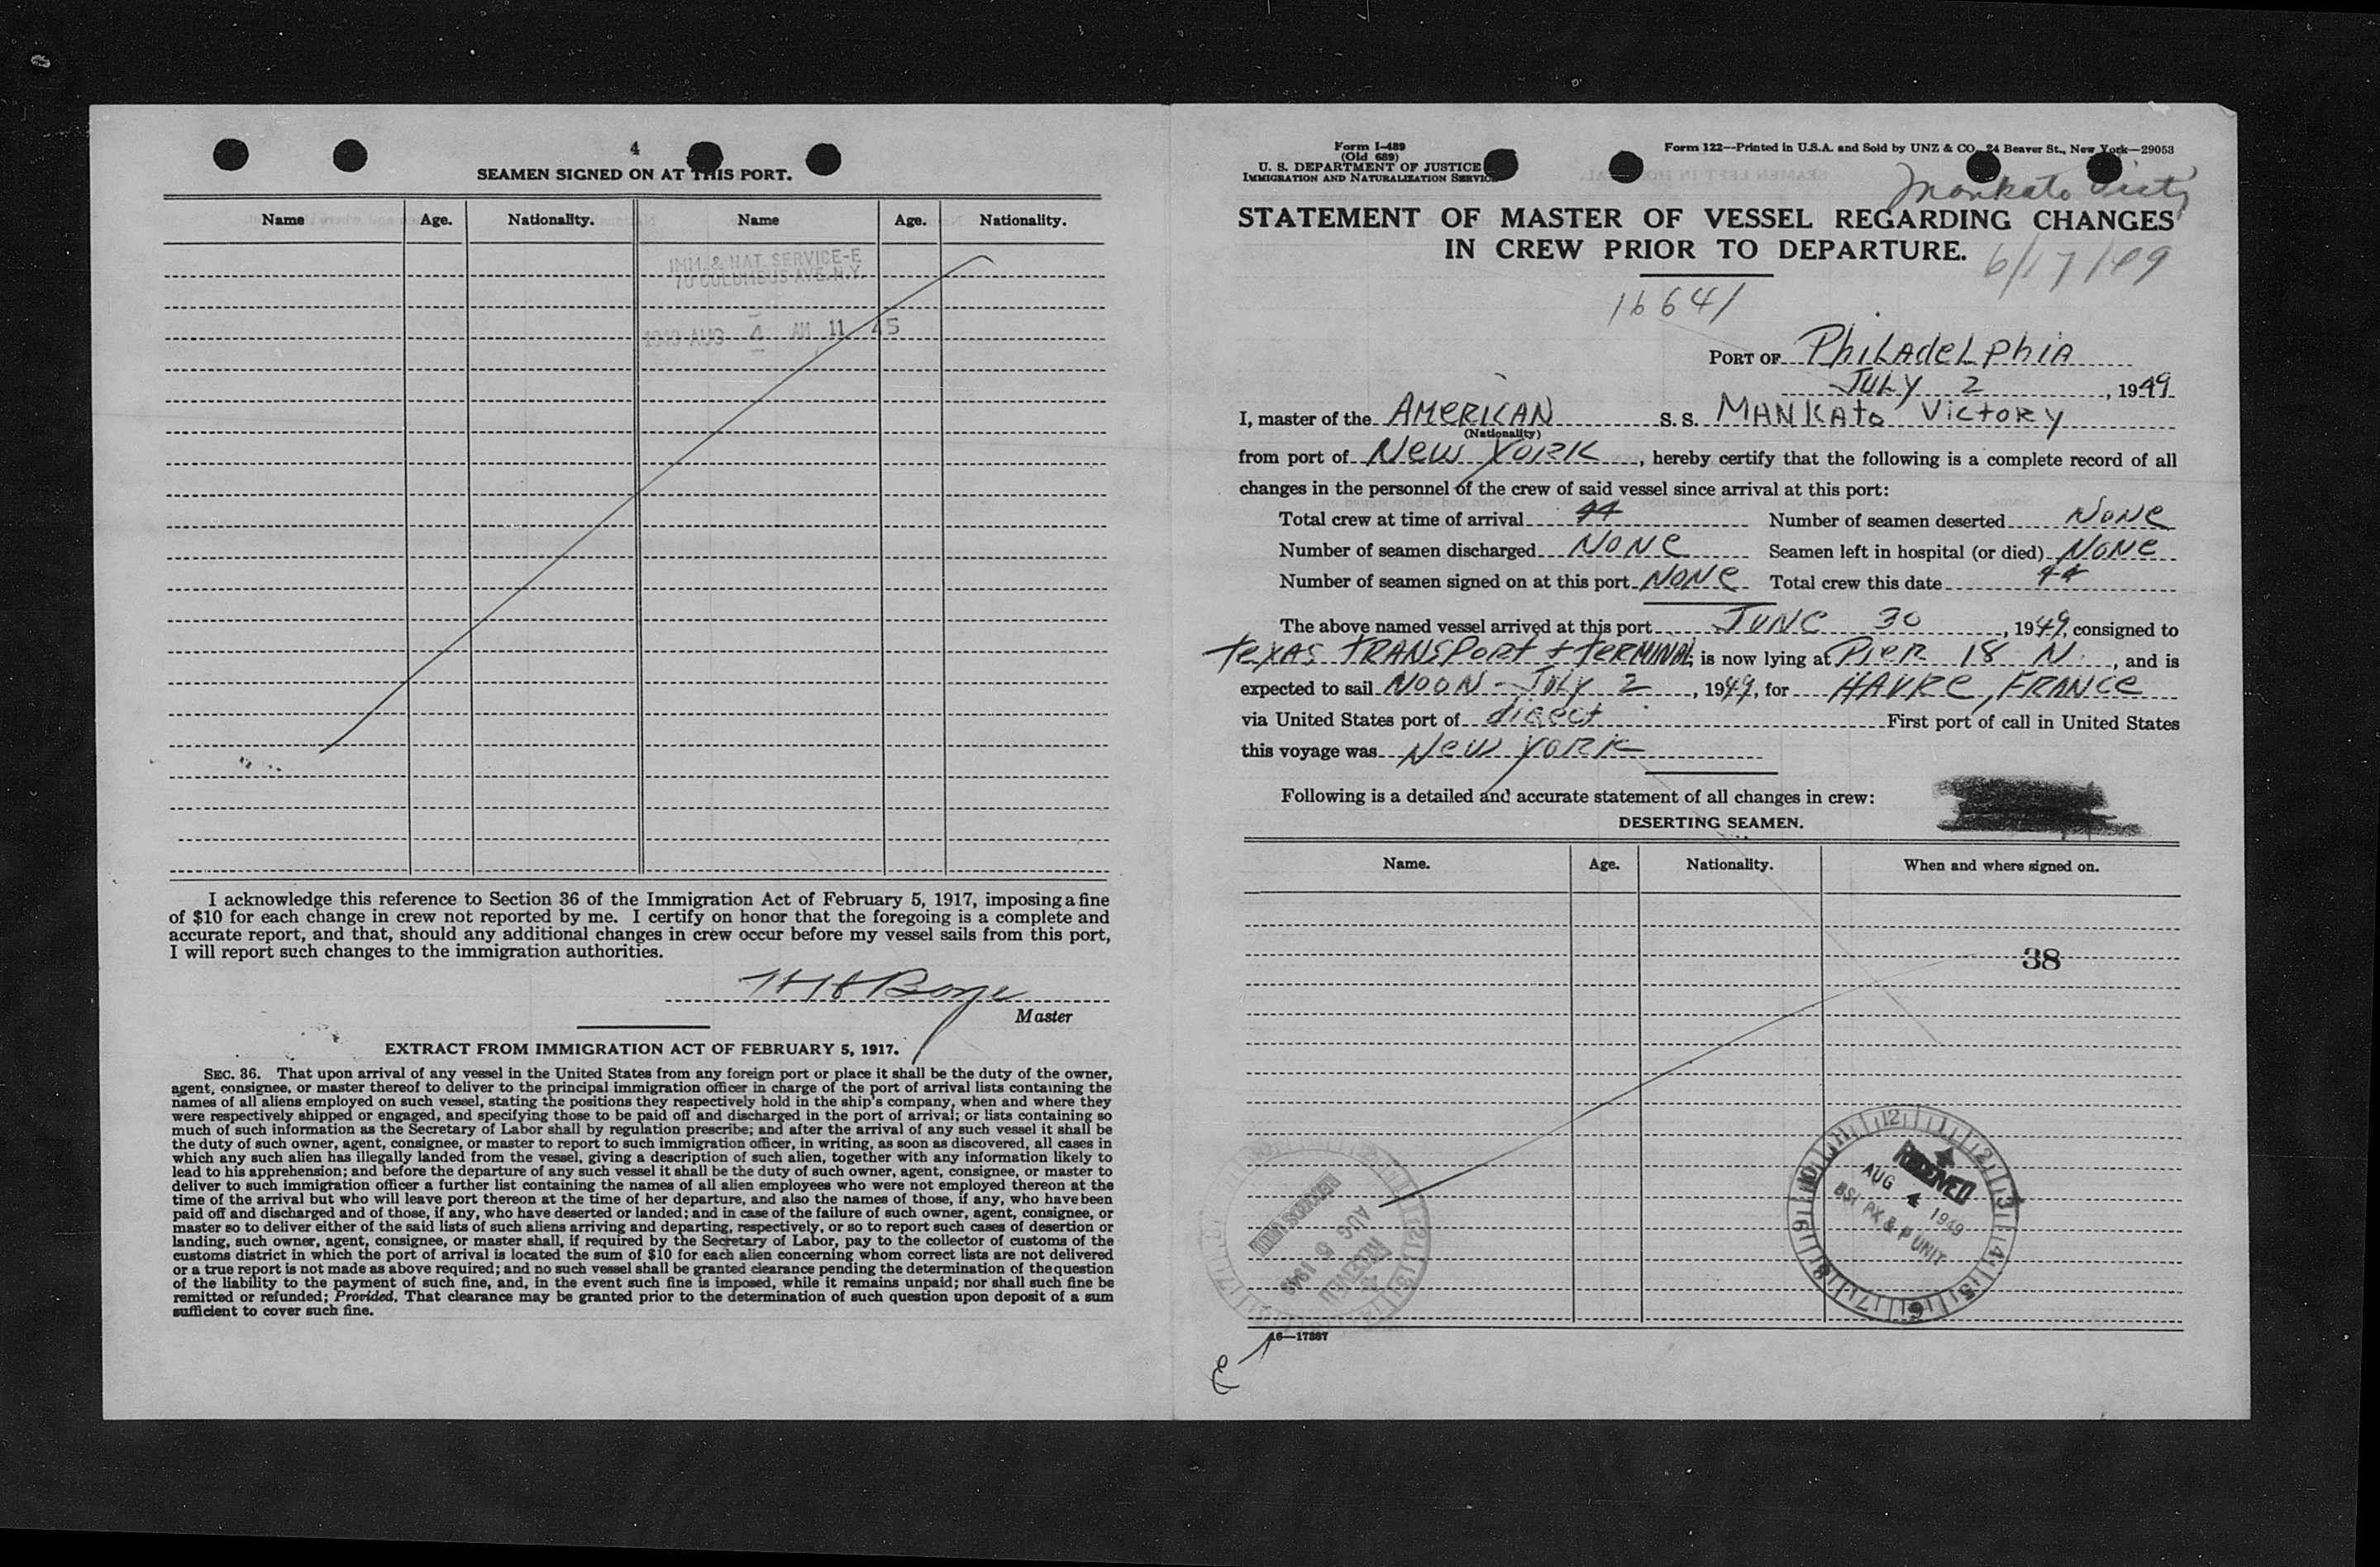 4
SEAMEN SIGNED ON AT THIS PORT.
Name Age. Nationality. Name Age. Nationality.
IMM. & NAT. SERVICE-E
70 COLUMBUS AVE. N.Y.
1949 AUG 4 AM 11 45
I acknowledge this reference to Section 36 of the Immigration Act of February 5, 1917, imposing a fine
of $10 for each change in crew not reported by me. I certify on honor that the foregoing is a complete and
accurate report, and that, should any additional changes in crew occur before my vessel sails from this port,
I will report such changes to the immigration authorities.
Master
EXTRACT FROM IMMIGRATION ACT OF FEBRUARY 5, 1917.
SEC. 36. That upon arrival of any vessel in the United States from any foreign port or place it shall be the duty of the owner,
agent, consignee, or master thereof to deliver to the principal immigration officer in charge of the port of arrival lists containing the
names of all aliens employed on such vessel, stating the positions they respectively hold in the ship's company, when and where they
were respectively shipped or engaged, and specifying those to be paid off and discharged in the port of arrival; or lists containing so
much of such information as the Secretary of Labor shall by regulation prescribe; and after the arrival of any such vessel it shall be
the duty of such owner, agent, consignee, or master to report to such immigration officer, in writing, as soon as discovered, all cases in
which any such alien has illegally landed from the vessel, giving a description of such alien, together with any information likely to
lead to his apprehension; and before the departure of any such vessel it shall be the duty of such owner, agent, consignee, or master to
deliver to such immigration officer a further list containing the names of all alien employees who were not employed thereon at the
time of the arrival but who will leave port thereon at the time of her departure, and also the names of those, if any, who have been
paid off and discharged and of those, if any, who have deserted or landed; and in case of the failure of such owner, agent, consignee, or
master so to deliver either of the said lists of such aliens arriving and departing, respectively, or so to report such cases of desertion or
landing, such owner, agent, consignee, or master shall, if required by the Secretary of Labor, pay to the collector of customs of the
customs district in which the port of arrival is located the sum of $10 for each alien concerning whom correct lists are not delivered
or a true report is not made as above required; and no such vessel shall be granted clearance pending the determination of the question
of the liability to the payment of such fine, and, in the event such fine is imposed, while it remains unpaid; nor shall such fine be
remitted or refunded; Provided, That clearance may be granted prior to the determination of such question upon deposit of a sum
sufficient to cover such fine.
Form I-489
(Old 689)
U. S. DEPARTMENT OF JUSTICE
IMMIGRATION AND NATURALIZATION SERVICE
Form 122—Printed in U.S.A. and Sold by UNZ & CO. 24 Beaver St., New York—29053
Mankato Victy
STATEMENT OF MASTER OF VESSEL REGARDING CHANGES
IN CREW PRIOR TO DEPARTURE.
6/17/49
16641
PORT OF Philadelphia
July 2, 1949
I, master of the American S. S. Mankato Victory
(Nationality)
from port of New York, hereby certify that the following is a complete record of all
changes in the personnel of the crew of said vessel since arrival at this port:
Total crew at time of arrival 44 Number of seamen deserted None
Number of seamen discharged None Seamen left in hospital (or died) None
Number of seamen signed on at this port None Total crew this date 44
The above named vessel arrived at this port June 30, 1949, consigned to
Texas Transport & Terminal, is now lying at Pier 18 N., and is
expected to sail Noon - July 2, 1949, for Havre, France
via United States port of direct First port of call in United States
this voyage was New York
Following is a detailed and accurate statement of all changes in crew:
DESERTING SEAMEN.
Name. Age. Nationality. When and where signed on.
38
RECEIVED
AUG 4 1949
BSI PX & P UNIT
RECEIVED
AUG 5 1949
16—17887